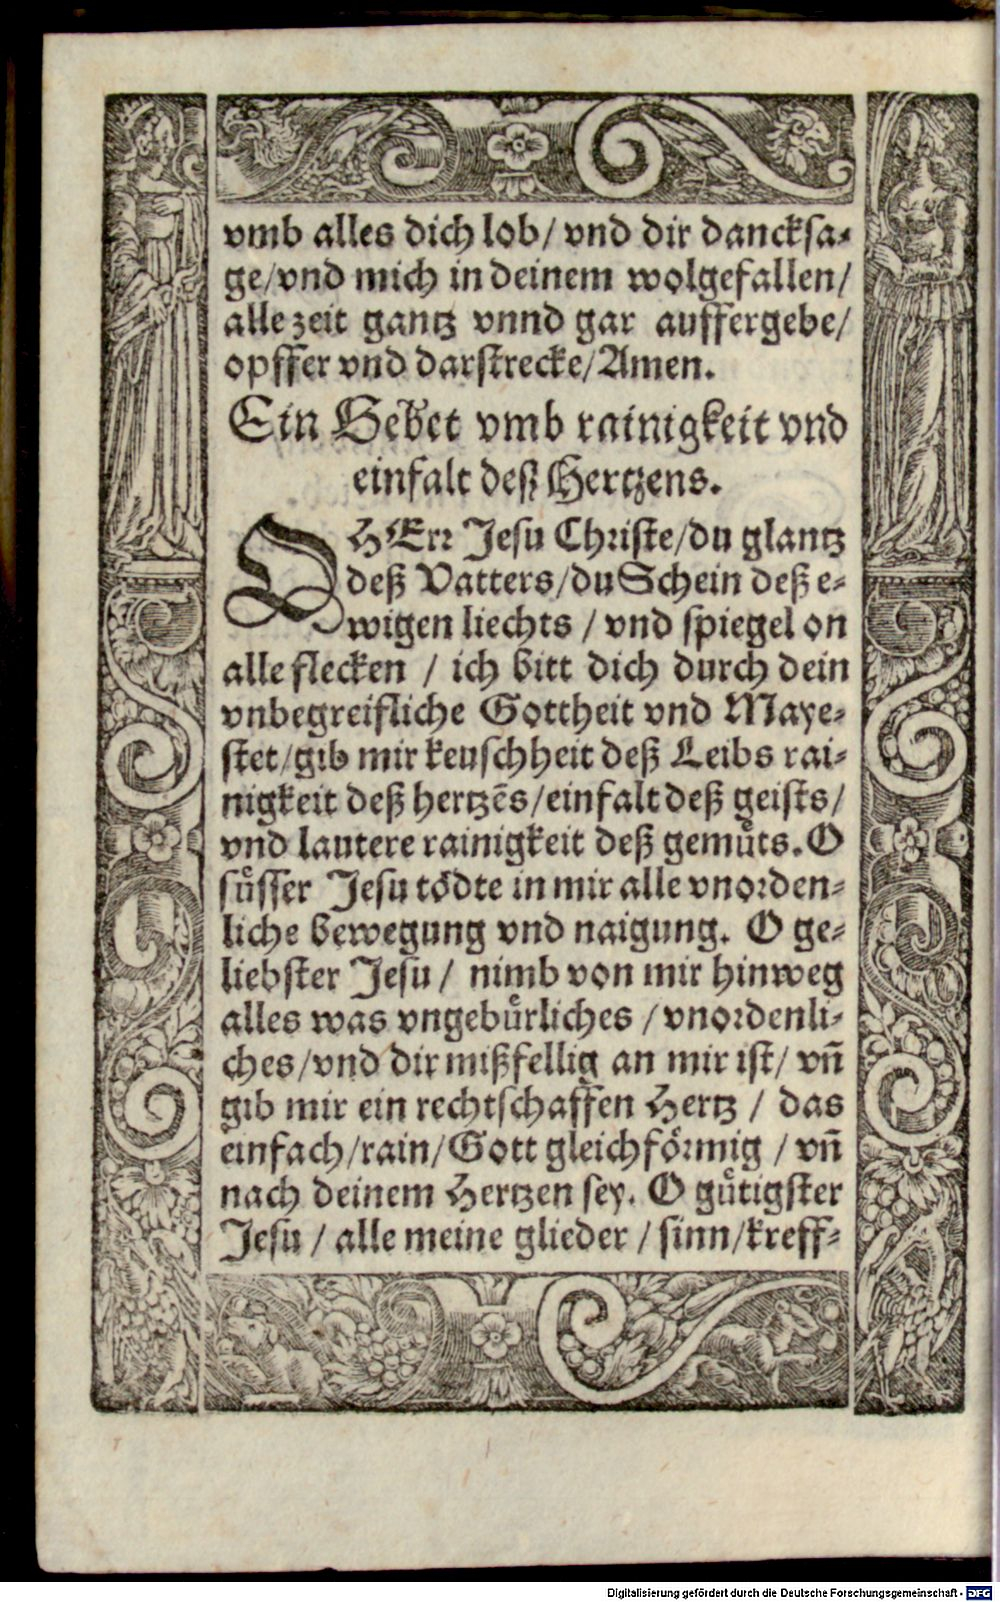 vmb alles dich lob/ vnd dir dancksa-
ge/vnd mich in deinem wolgefallen/
alle zeit gantz vnnd gar auffergebe/
opffer vnd darstrecke/Amen.
Ein Gebet vmb rainigkeit vnd
einfalt deß Hertzens.
O HErr Jesu Christe/du glantz
deß Vatters/du Schein deß e-
wigen liechts / vnd spiegel on
alle flecken / ich bitt dich durch dein
vnbegreifliche Gottheit vnd Maye-
stet/gib mir keuschheit deß Leibs rai-
nigkeit deß hertzēs/einfalt deß geists/
vnd lautere rainigkeit deß gemuͤts. O
suͤsser Jesu toͤdte in mir alle vnorden-
liche bewegung vnd naigung. O ge-
liebster Jesu / nimb von mir hinweg
alles was vngebuͤrliches / vnordenli-
ches/vnd dir mißfellig an mir ist/ vñ
gib mir ein rechtschaffen Hertz / das
einfach/rain/Gott gleichfoͤrmig / vñ
nach deinem Hertzen sey. O guͤtigster
Jesu / alle meine glieder / sinn/kreff-
Digitalisierung gefördert durch die Deutsche Forschungsgemeinschaft - DFG